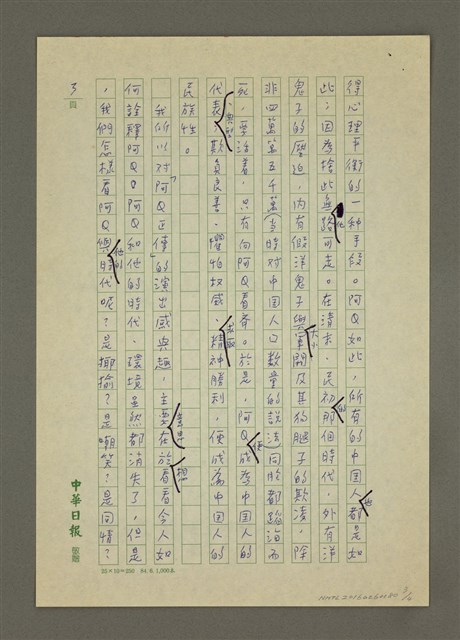 得心理平衡的一種手段。阿Q如此,所有的中国人也都是如
此;因為捨此無他路可走。在清末、民初的那個時代,外有洋
鬼子的壓迫,内有假洋鬼子與大小軍閥及其狗腿子的欺凌,除
非四萬萬五千萬(当時对中国人口数量的說法)同胞都蹈海而
死,要活着,只有向阿Q看齊。於是,阿Q便成為中国人的
代表、典型,欺負良善、懼怕权威、求取精神勝利,便成為中国人的
民族性。
我所以对「阿Q正傳」的演出感興趣,主要在於想看看今人如
何詮釋阿Q。阿Q和他的時代、環境虽然都消失了,但是
,我們怎樣看阿Q與他的時代呢?是揶揄?是嘲笑?是同情?
3
頁
中華日報
25×10=250 84.6.1,000本